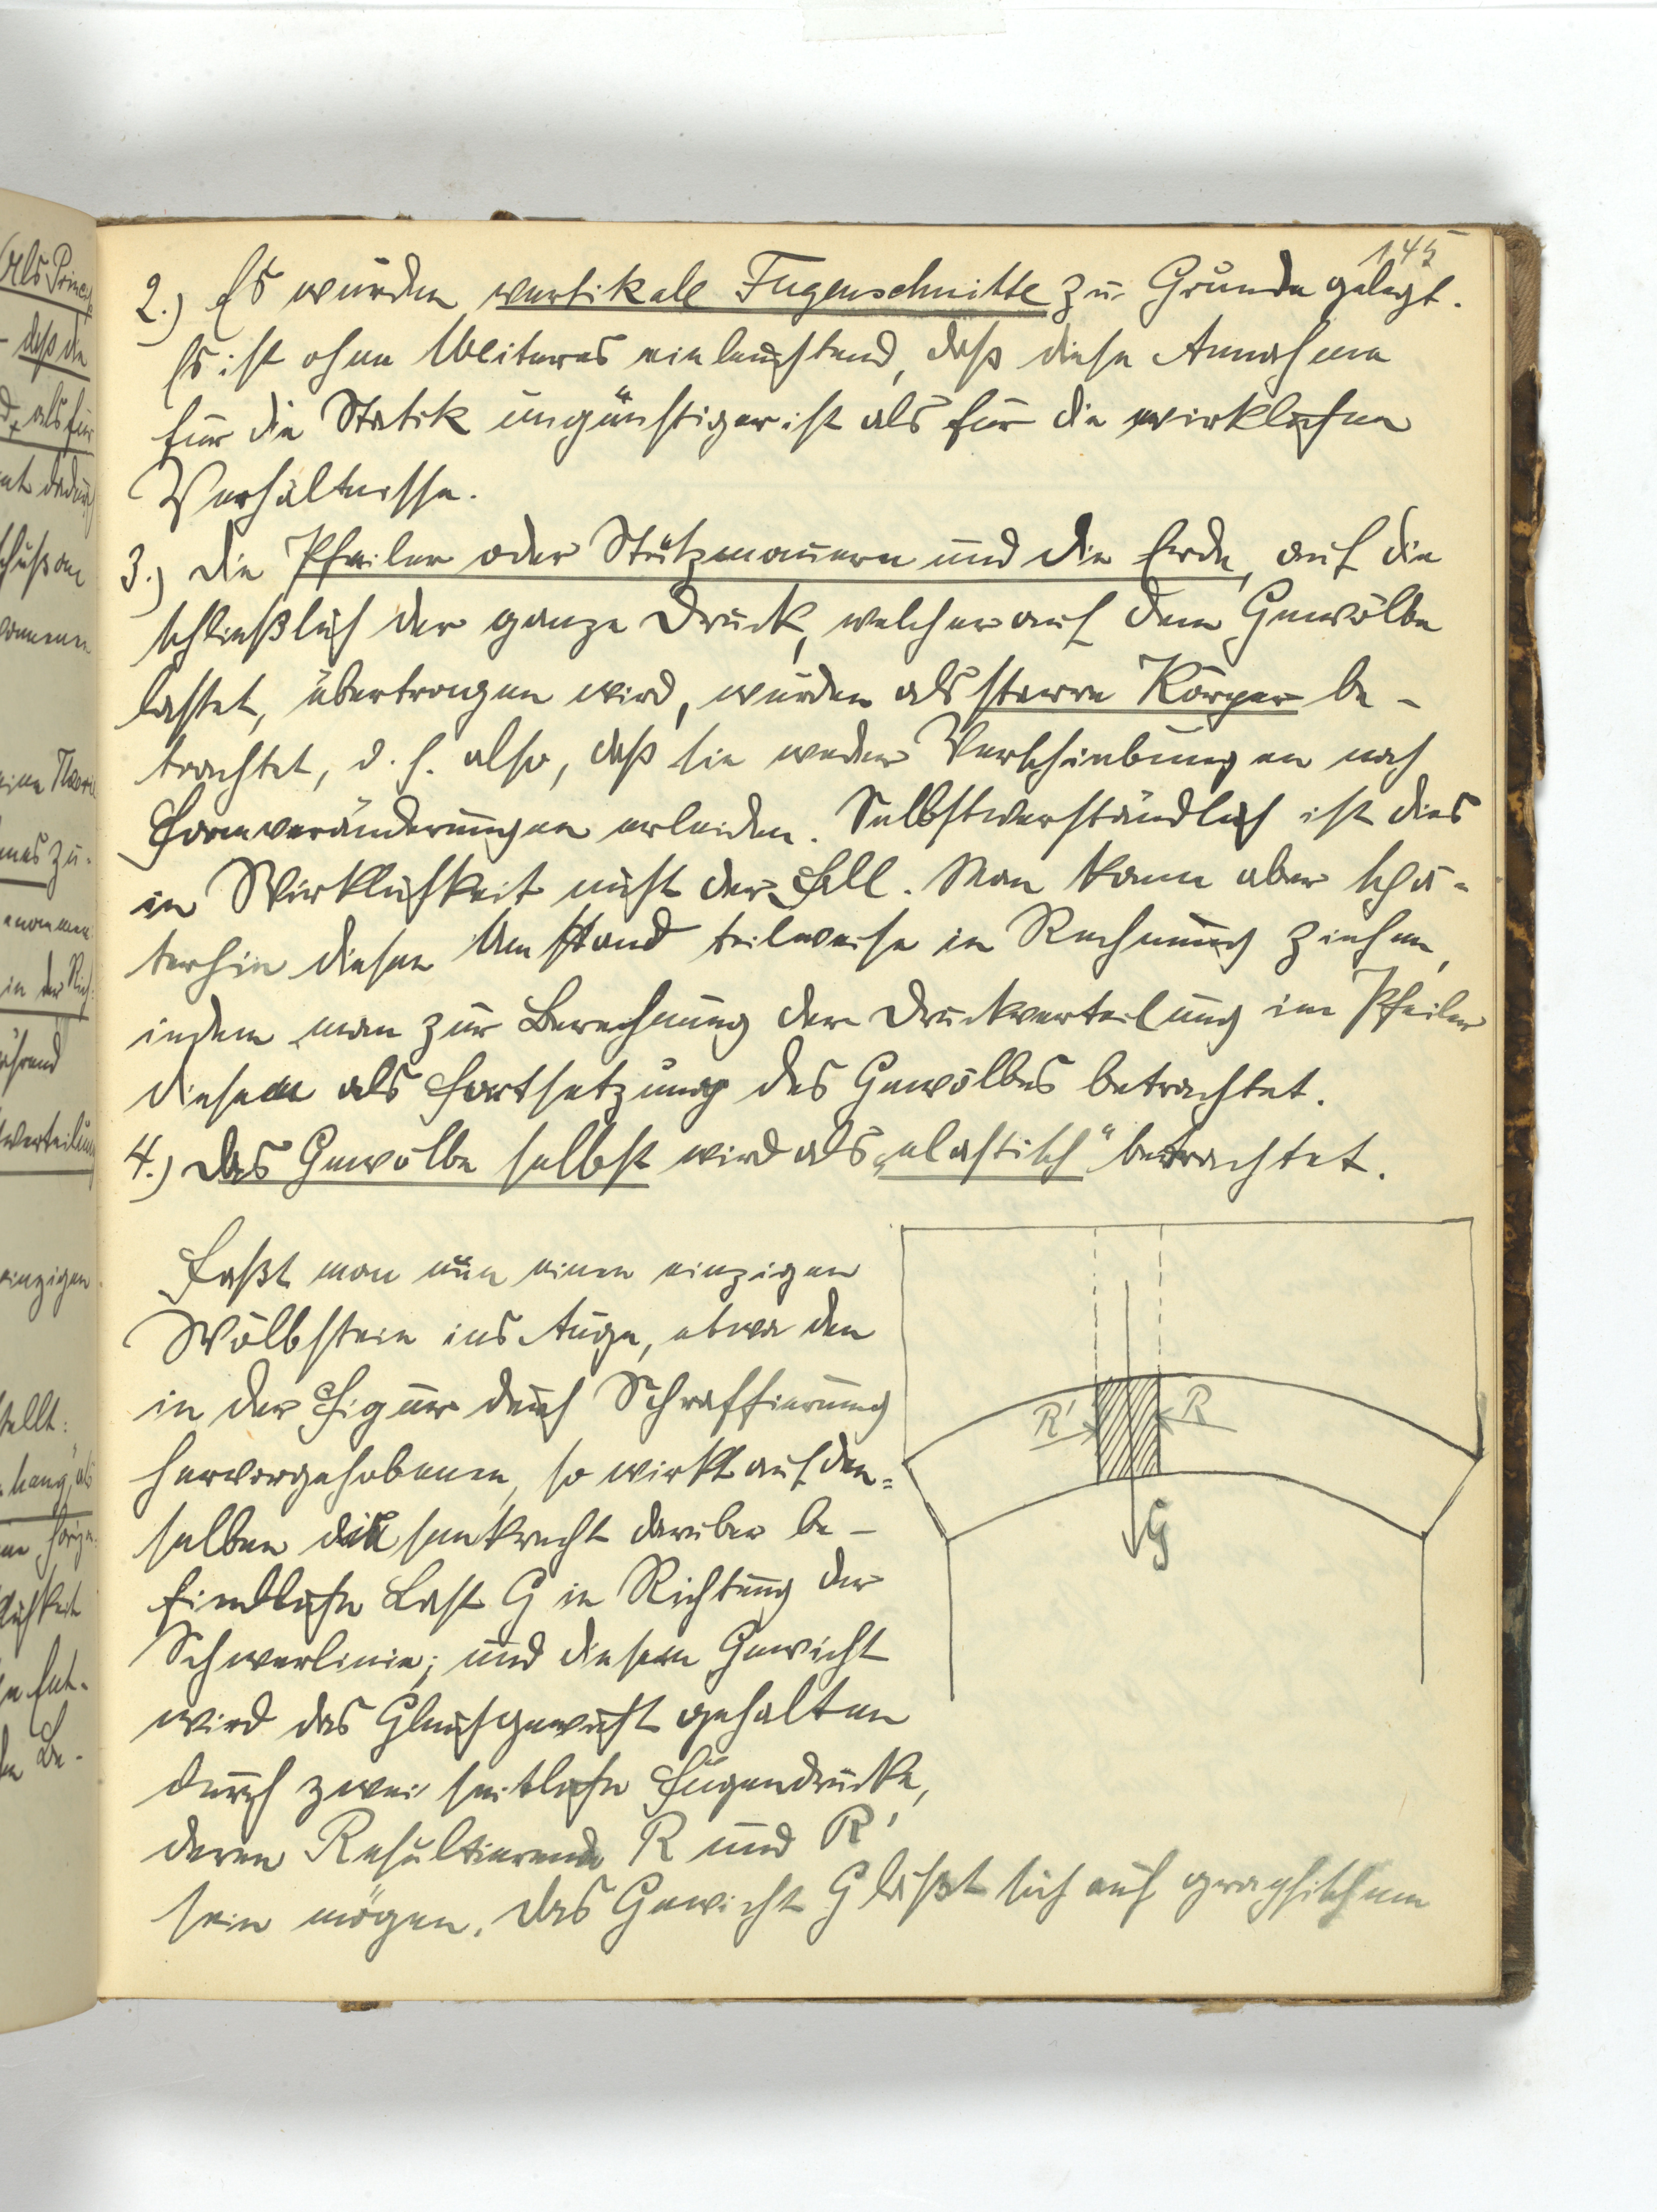 145
2.) Es wurden vertikale Fugenschnitte zu Grunde gelegt.
Es ist ohne Weiteres einleuchtend, daß diese Annahme
für die Statik ungünstiger ist als für die wirklichen
Verhältnisse.
3.) Die Pfeiler oder Stützmauern und die Erde, auf die
schließlich der ganze Druck, welcher auf dem Gewölbe
lastet, übertragen wird, wurden als starre Körper be-
trachtet, d. h. also, daß sie weder Verschiebungen noch
Formveränderungen erleiden. Selbstverständlich ist dies
in Wirklichkeit nicht der Fall. Man kann aber spä-
terhin diesen Umstand teilweise in Rechnung ziehen,
indem man zur Berechnung der Druckverteilung im Pfeiler
diesen als Fortsetzung des Gewölbes betrachtet.
4.) Das Gewölbe selbst wird als „elastisch“ betrachtet.
Faßt man nun einen einzigen
Wölbstein ins Auge, etwa den
in der Figur durch Schraffierung
hervorgehobenen, so wirkt auf den-
selben die senkrecht darüber be-
findliche Last G in Richtung der
Schwerlinie; und diesem Gewicht
wird das Gleichgewicht gehalten
durch zwei seitliche Fugendrücke,
deren Resultierende R und R'
sein mögen. Das Gewicht G läßt sich auf graphischem
R'
R
G